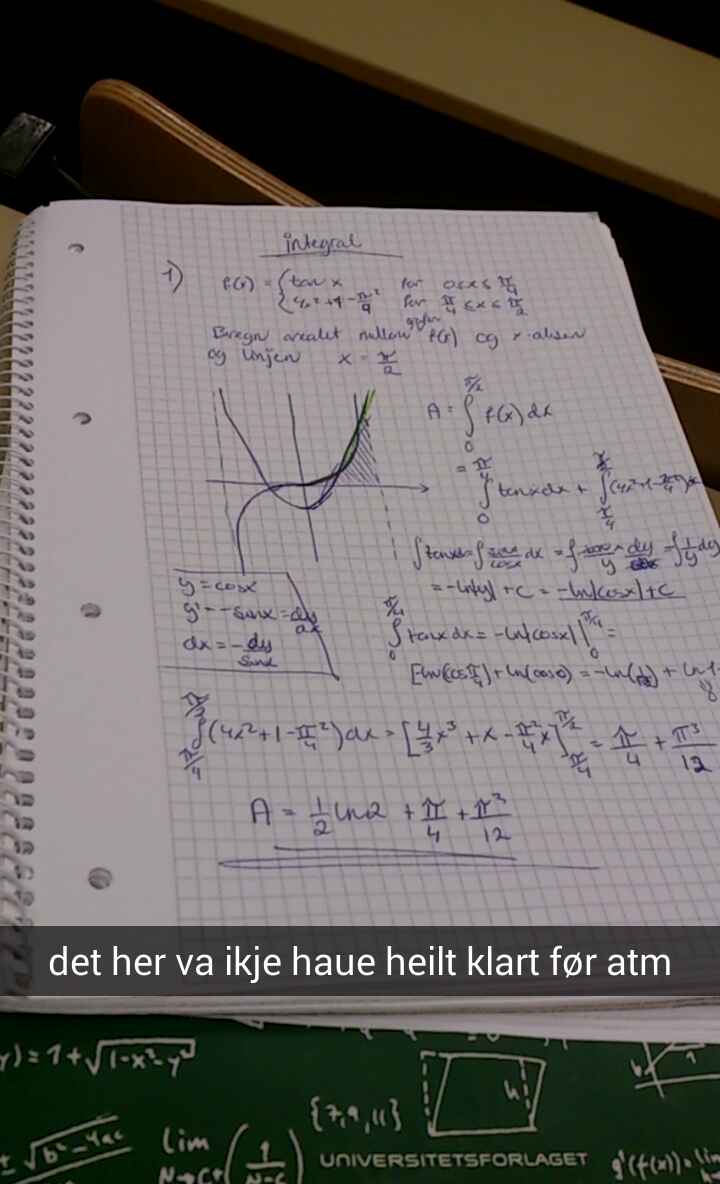 integral
1) f(x) = { tan x for 0≤x≤ π/4
4x²+1-π²/4 for π/4 ≤x≤ π/2
Beregn arealet mellom grafen f(x) og x-aksen
og linjen x = π/2
A = ∫₀^{π/2} f(x) dx
= ∫₀^{π/4} tanxdx + ∫_{π/4}^{π/2} (4x²+1-π²/4)dx
∫tanxdx = ∫ sinx/cosx dx = ∫ - sinx/y · dy/sinx = -∫ 1/y dy
= -ln|y| + C = -ln|cosx| + C
y = cosx
y' = -sinx = dy/dx
dx = -dy/sinx
∫₀^{π/4} tanx dx = -ln|cosx| |₀^{π/4} =
[-ln(cos π/4) + ln(cos0) = -ln(1/√2) + ln 1
∫_{π/4}^{π/2} (4x²+1-π²/4) dx = [4/3 x³ + x - π²/4 x]_{π/4}^{π/2} = π/4 + π³/12
A = 1/2 ln2 + π/4 + π³/12
det her va ikje haue heilt klart før atm
y) = 1+√1-x²-y²
± √b²-4ac
lim
N→C+ (1/N-C)
{7,9,11}
h
UNIVERSITETSFORLAGET
g'(f(x)) = lim